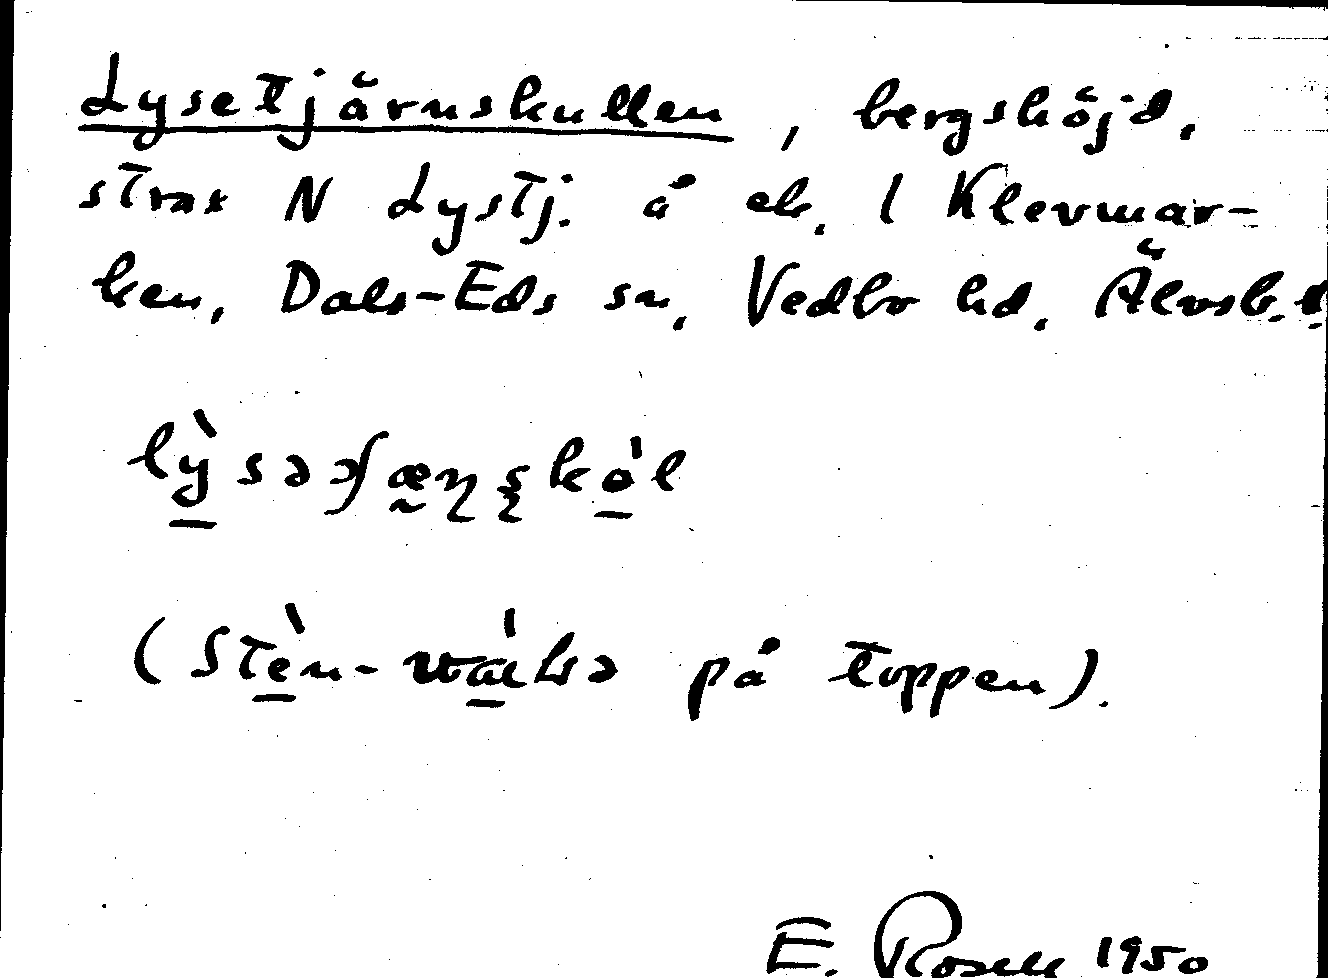 Lysetjärnskullen, bergshöjd,
strax N Lystj. å ek. I Klevmar-
ken, Dals-Eds sn, Vedbo hd, Älvsb.l.
(Stèn- på toppen).
E. Rosell 1950